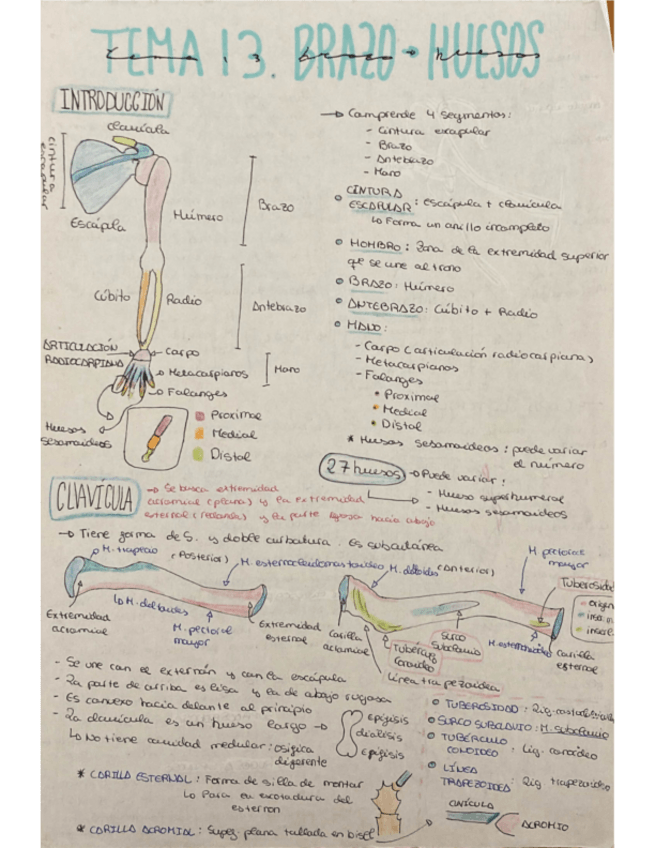 TEMA 13. BRAZO - HUESOS
INTRODUCCIÓN
Clavícula
cintura
escapular
Escápla
Húmero
Brazo
Cúbito
Radio
Antebrazo
ARTICULACIÓN
RADIOCARPIANA
Carpo
Metacarpianos
Falanges
Mano
Huesos
sesamoideos
Proximal
Medial
Distal
→ Comprende 4 segmentos:
- Cintura escapular
- Brazo
- Antebrazo
- Mano
CINTURA
ESCAPULAR: escápula + clavícula
↳ Forma un anillo incompleto
HOMBRO: Zona de la extremidad superior
que se une al trono
BRAZO: Húmero
ANTEBRAZO: Cúbito + Radio
MANO:
- Carpo (articulación radiocarpiana)
- Metacarpianos
- Falanges
• Proximal
• Medial
• Distal
* Huesos sesamoideos: puede variar
el número
27 huesos → Puede variar:
- Hueso superhumeral
- Huesos sesamoideos
CLAVÍCULA
→ Se busca extremidad
acromial (plana) y la extremidad
esternal (redonda) y la parte rugosa hacia abajo
→ Tiene forma de S. y doble curbatura. Es subcutánea
M. trapecio
(Posterior)
M. esternocleidomastoideo
M. deltoides
(Anterior)
M. pectoral
mayor
Tuberosidad
Extremidad
acromial
M. deltoides
M. pectoral
mayor
Extremidad
esternal
Carilla
acromial
Tubérculo
conoideo
Surco
subclavio
Línea trapezoidea
M. esternohioideo
Carilla
esternal
- Se une con el externón y con la escápula
- La parte de arriba es lisa y la de abajo rugosa
- Es convexo hacia delante al principio
- La clavícula es un hueso largo →
epífisis
diáfisis
epífisis
↳ No tiene cavidad medular:
* CARILLA ESTERNAL: Forma de silla de montar
↳ Para en escotadura del
esternon
* CARILLA ACROMIAL: Super. plana tallada en bisel
TUBEROSIDAD:
SURCO SUBCLAVIO: M. subclavio
TUBÉRCULO
CONOIDEO: Lig. conoideo
LÍNEA
TRAPEZOIDEA: Lig trapezoideo
CLAVÍCULA
ACROMIO